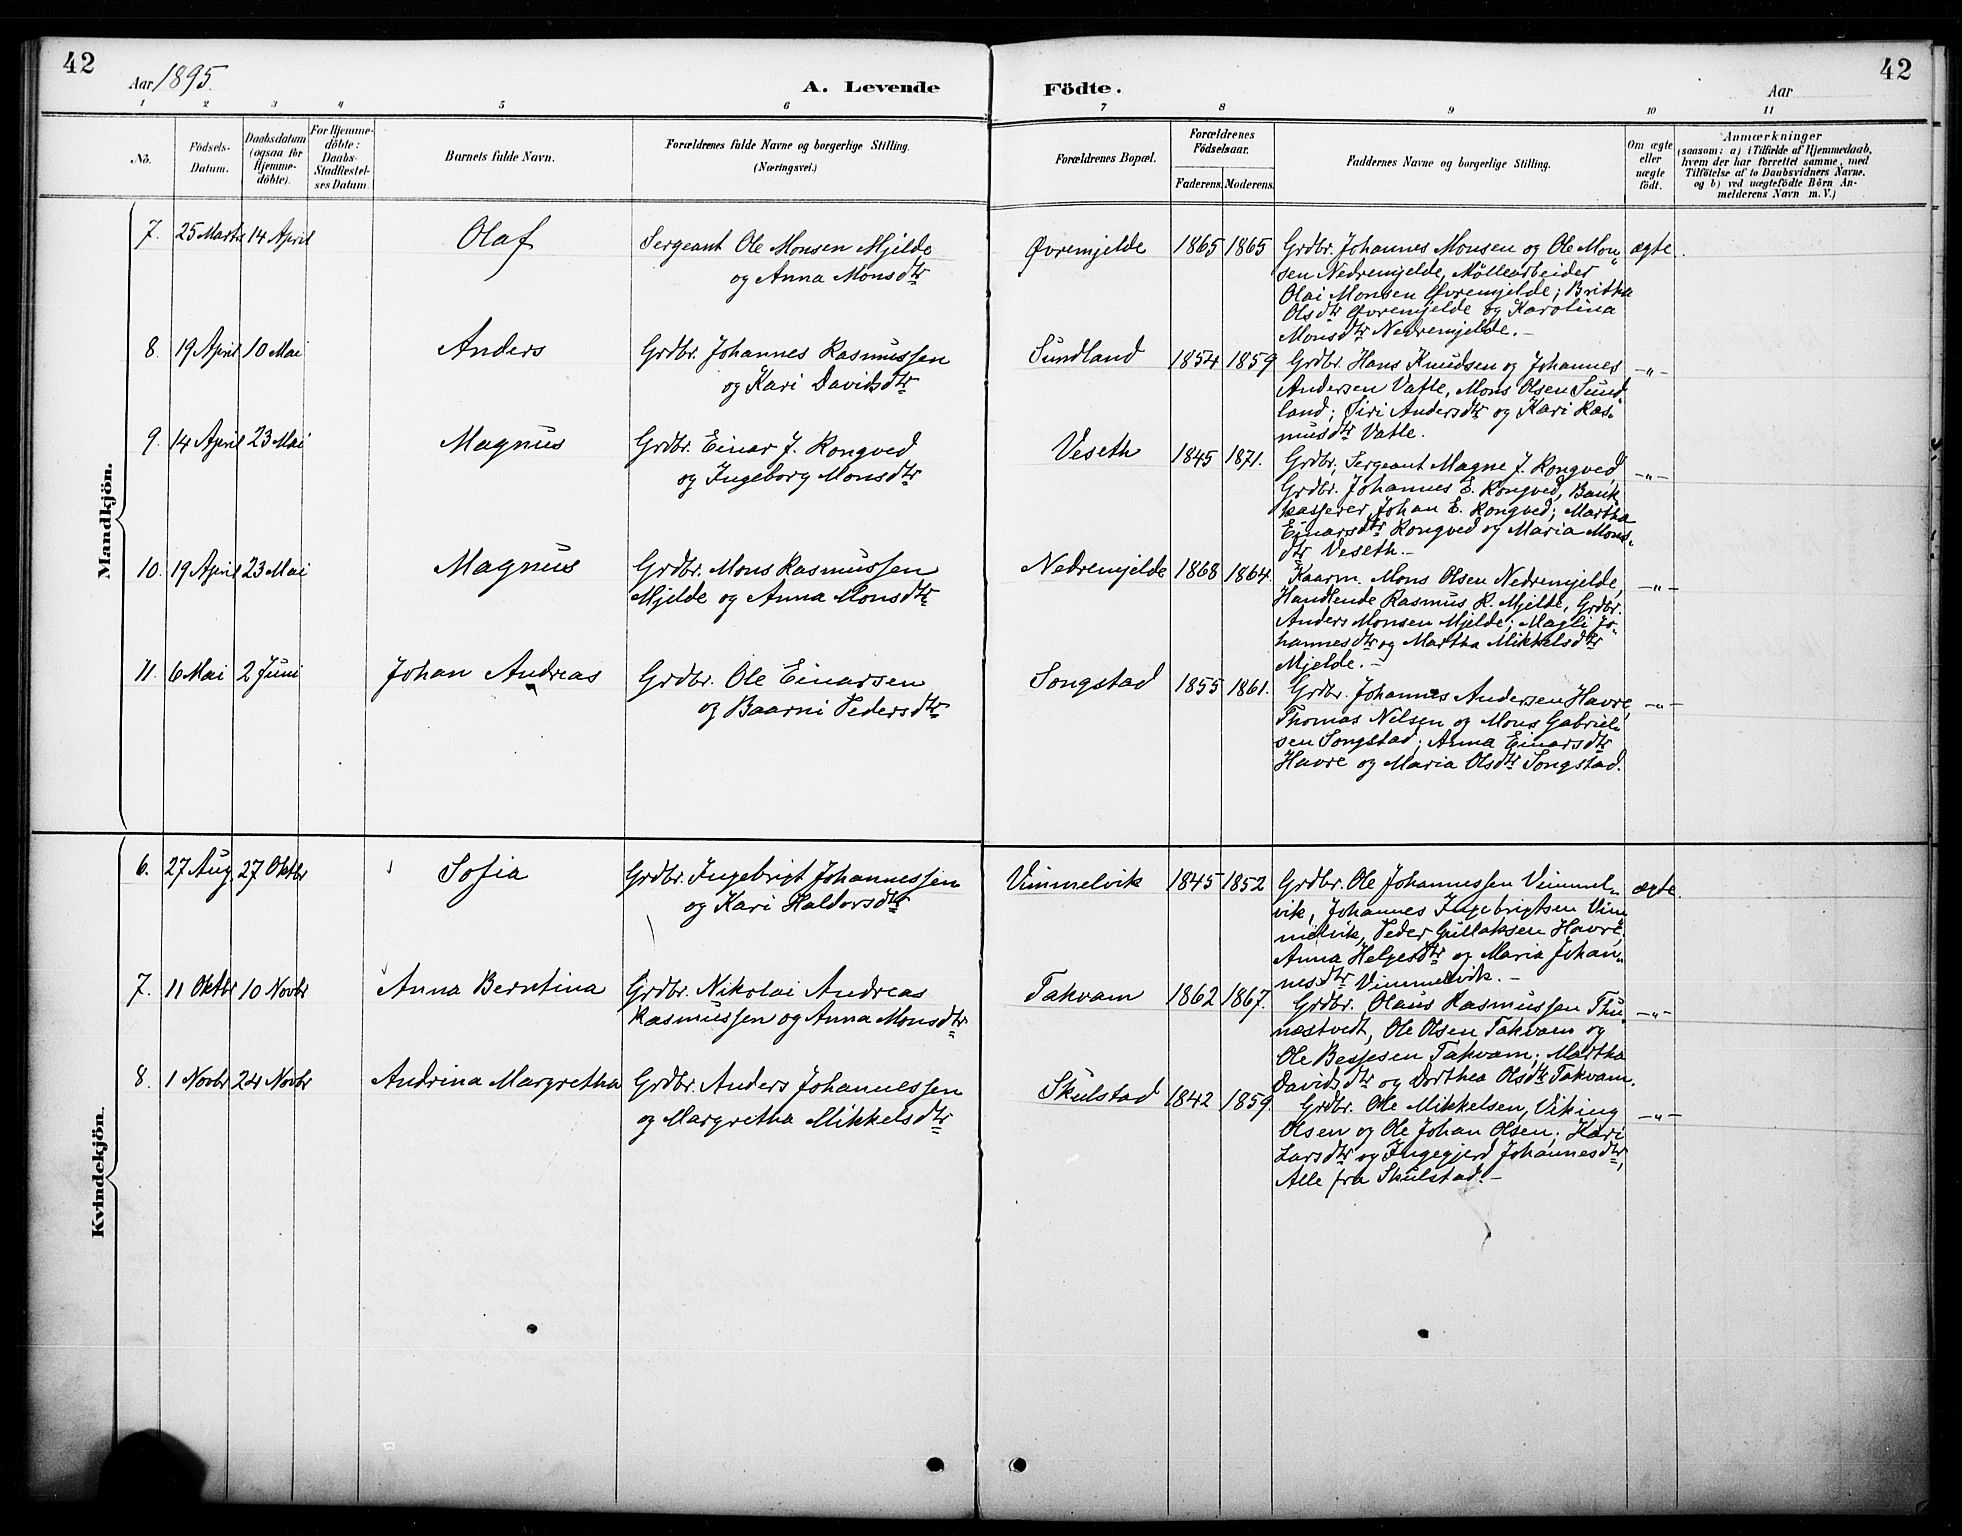 42
Aar 1895.
A. Levende
Födte.
Aar
42
1 2 3 4 5 6 7 8 9 10 11
Nö.
Födsels-Datum.
Daabsdatum (ogsaa for Hjemme-döbte).
For Hjemme-döbte: Daabs-Stadfæstel-ses Datum.
Barnets fulde Navn.
Forældrenes fulde Navne og borgerlige Stilling.
(Næringsvei.)
Forældrenes Bopæl.
Forældrenes Födselsaar.
Faderens. Moderens.
Faddernes Navne og borgerlige Stilling.
Om ægte eller uægte födt.
Anmærkninger
(saasom: a) i Tilfælde af Hjemmedaab,
hvem der har forrettet samme, med
Tilföielse af to Daabsvidners Navne.
og b) ved uægtefödte Börn An-
melderens Navn m. V.)
Mandkjön.
7. 25 Marts 14 April Olaf Sergeant Ole Monsen Mjelde
og Anna Monsdtr
Øvremjelde 1865 1865 Grdbr. Johannes Monsen og Ole Mon-
sen Nedremjelde, Møllearbeider
Olai Monsen Øvremjelde; Britha
Olsdtr Øvremjelde og Karolina
Monsdtr Nedremjelde.-
ægte.
8. 19 April 10 Mai Anders Grdbr. Johannes Rasmussen
og Kari Davidsdtr
Sundland 1854 1859 Grdbr. Hans Knudsen og Johannes
Andersen Vatle, Mons Olsen Sund-
land; Siri Andersdtr og Kari Ras-
musdtr Vatle.
-"-
9. 14 April 23 Mai Magnus Grdbr. Einar J. Rongved
og Ingeborg Monsdtr
Veseth 1845 1871. Grdbr, Sergeant Magne J. Rongved,
Grdbr. Johannes E. Rongved, Bank-
kasserer Johan E. Rongved; Martha
Einarsdtr Rongved og Maria Mons-
dtr Veseth.-
-"-
10. 19 April 23 Mai Magnus Grdbr. Mons Rasmussen
Mjelde og Anna Monsdtr
Nedremjelde 1868 1864. Kaarm. Mons Olsen Nedremjelde,
Handlende Rasmus R. Mjelde, Grdbr.
Anders Monsen Mjelde; Magli Jo-
hannesdtr og Martha Mikkelsdtr
Mjelde.-
-"-
11. 6 Mai 2 Juni Johan Andreas Grdbr. Ole Einarsen
og Baarni Pedersdtr
Songstad 1855 1861. Grdbr. Johannes Andersen Havre,
Thomas Nilsen og Mons Gabriel-
sen Songstad; Anna Einarsdtr
Havre og Maria Olsdtr Songstad.
-"-
Kvindekjön.
6. 27 Aug. 27 Oktbr Sofia Grdbr. Ingebrigt Johannessen
og Kari Haldorsdtr
Vimmelvik 1845 1852 Grdbr. Ole Johannessen Vimmel-
vik, Johannes Ingebrigtsen Vim-
melvik, Peder Gullaksen Havre,
Anna Helgesdtr og Maria Johan-
nesdtr Vimmelvik.-
ægte.
7. 11 Oktbr 10 Novbr Anna Berntina Grdbr. Nikolai Andreas
Rasmussen og Anna Monsdtr
Takvam 1862 1867. Grdbr. Olaus Rasmussen Thu-
næstvedt, Ole Olsen Takvam og
Ole Besjesen Takvam; Martha
Davidsdtr og Dorthea Olsdtr Takvam.
-"-
8. 1 Novbr 24 Novbr Andrina Margretha Grdbr. Anders Johannessen
og Margretha Mikkelsdtr
Skulstad 1842 1859. Grdbr. Ole Mikkelsen, Viking
Olsen og Ole Johan Olsen; Kari
Larsdtr og Ingegjerd Johannesdtr,
Alle fra Skulstad.-
-"-